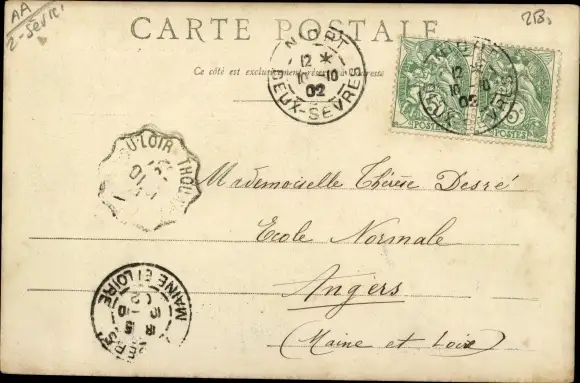 AA
2-Sèvri
2B
CARTE POSTALE
Ce côté est exclusivement réservé à l'adresse
NIORT
12 *
10 10
02
DEUX-SEVRES
POSTES
POSTES
DU-LOIR THOU
Mademoiselle Thérèse Desré
Ecole Normale
Angers
(Maine et Loire)
MAINE ET LOIRE